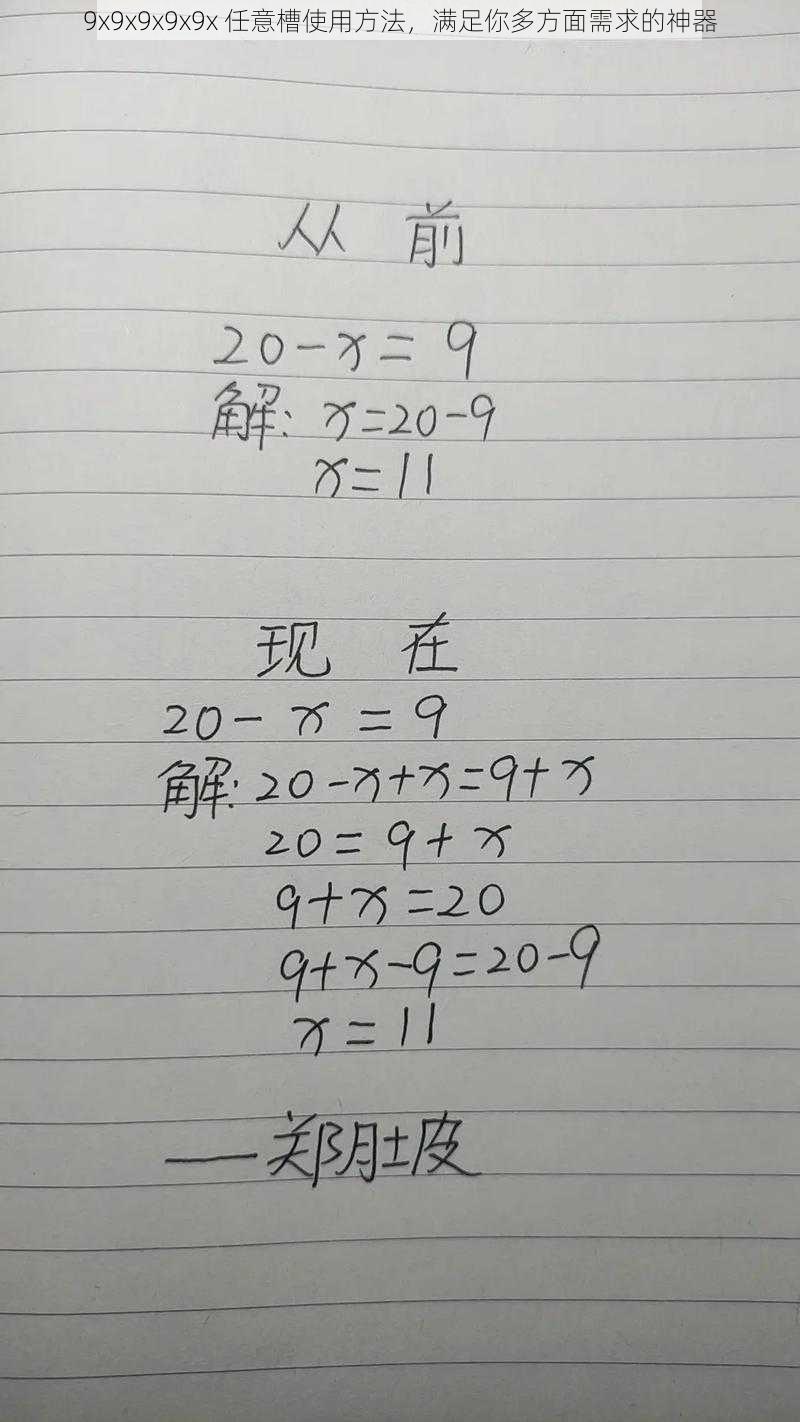 9x9x9x9x9x 任意槽使用方法，满足你多方面需求的神器
从 前
20-x=9
解: x=20-9
x=11
现 在
20-x=9
解: 20-x+x=9+x
20=9+x
9+x=20
9+x-9=20-9
x=11
——郑肚皮